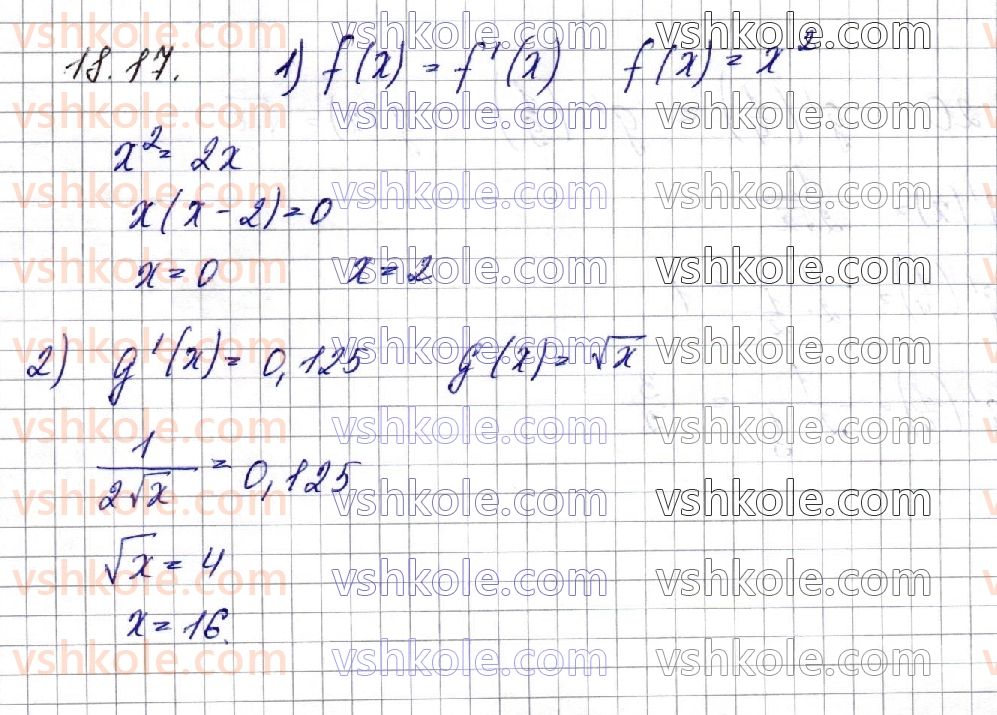 18.17. 1) f(x) = f'(x) f(x) = x²
x² = 2x
x(x - 2) = 0
x = 0 x = 2
2) g'(x) = 0,125 g(x) = √x
1/(2√x) = 0,125
√x = 4
x = 16.
vshkole.com vshkole.com vshkole.com
vshkole.com vshkole.com vshkole.com
vshkole.com vshkole.com vshkole.com
vshkole.com vshkole.com vshkole.com
vshkole.com vshkole.com vshkole.com
vshkole.com vshkole.com vshkole.com
vshkole.com vshkole.com vshkole.com
vshkole.com vshkole.com vshkole.com
vshkole.com vshkole.com vshkole.com